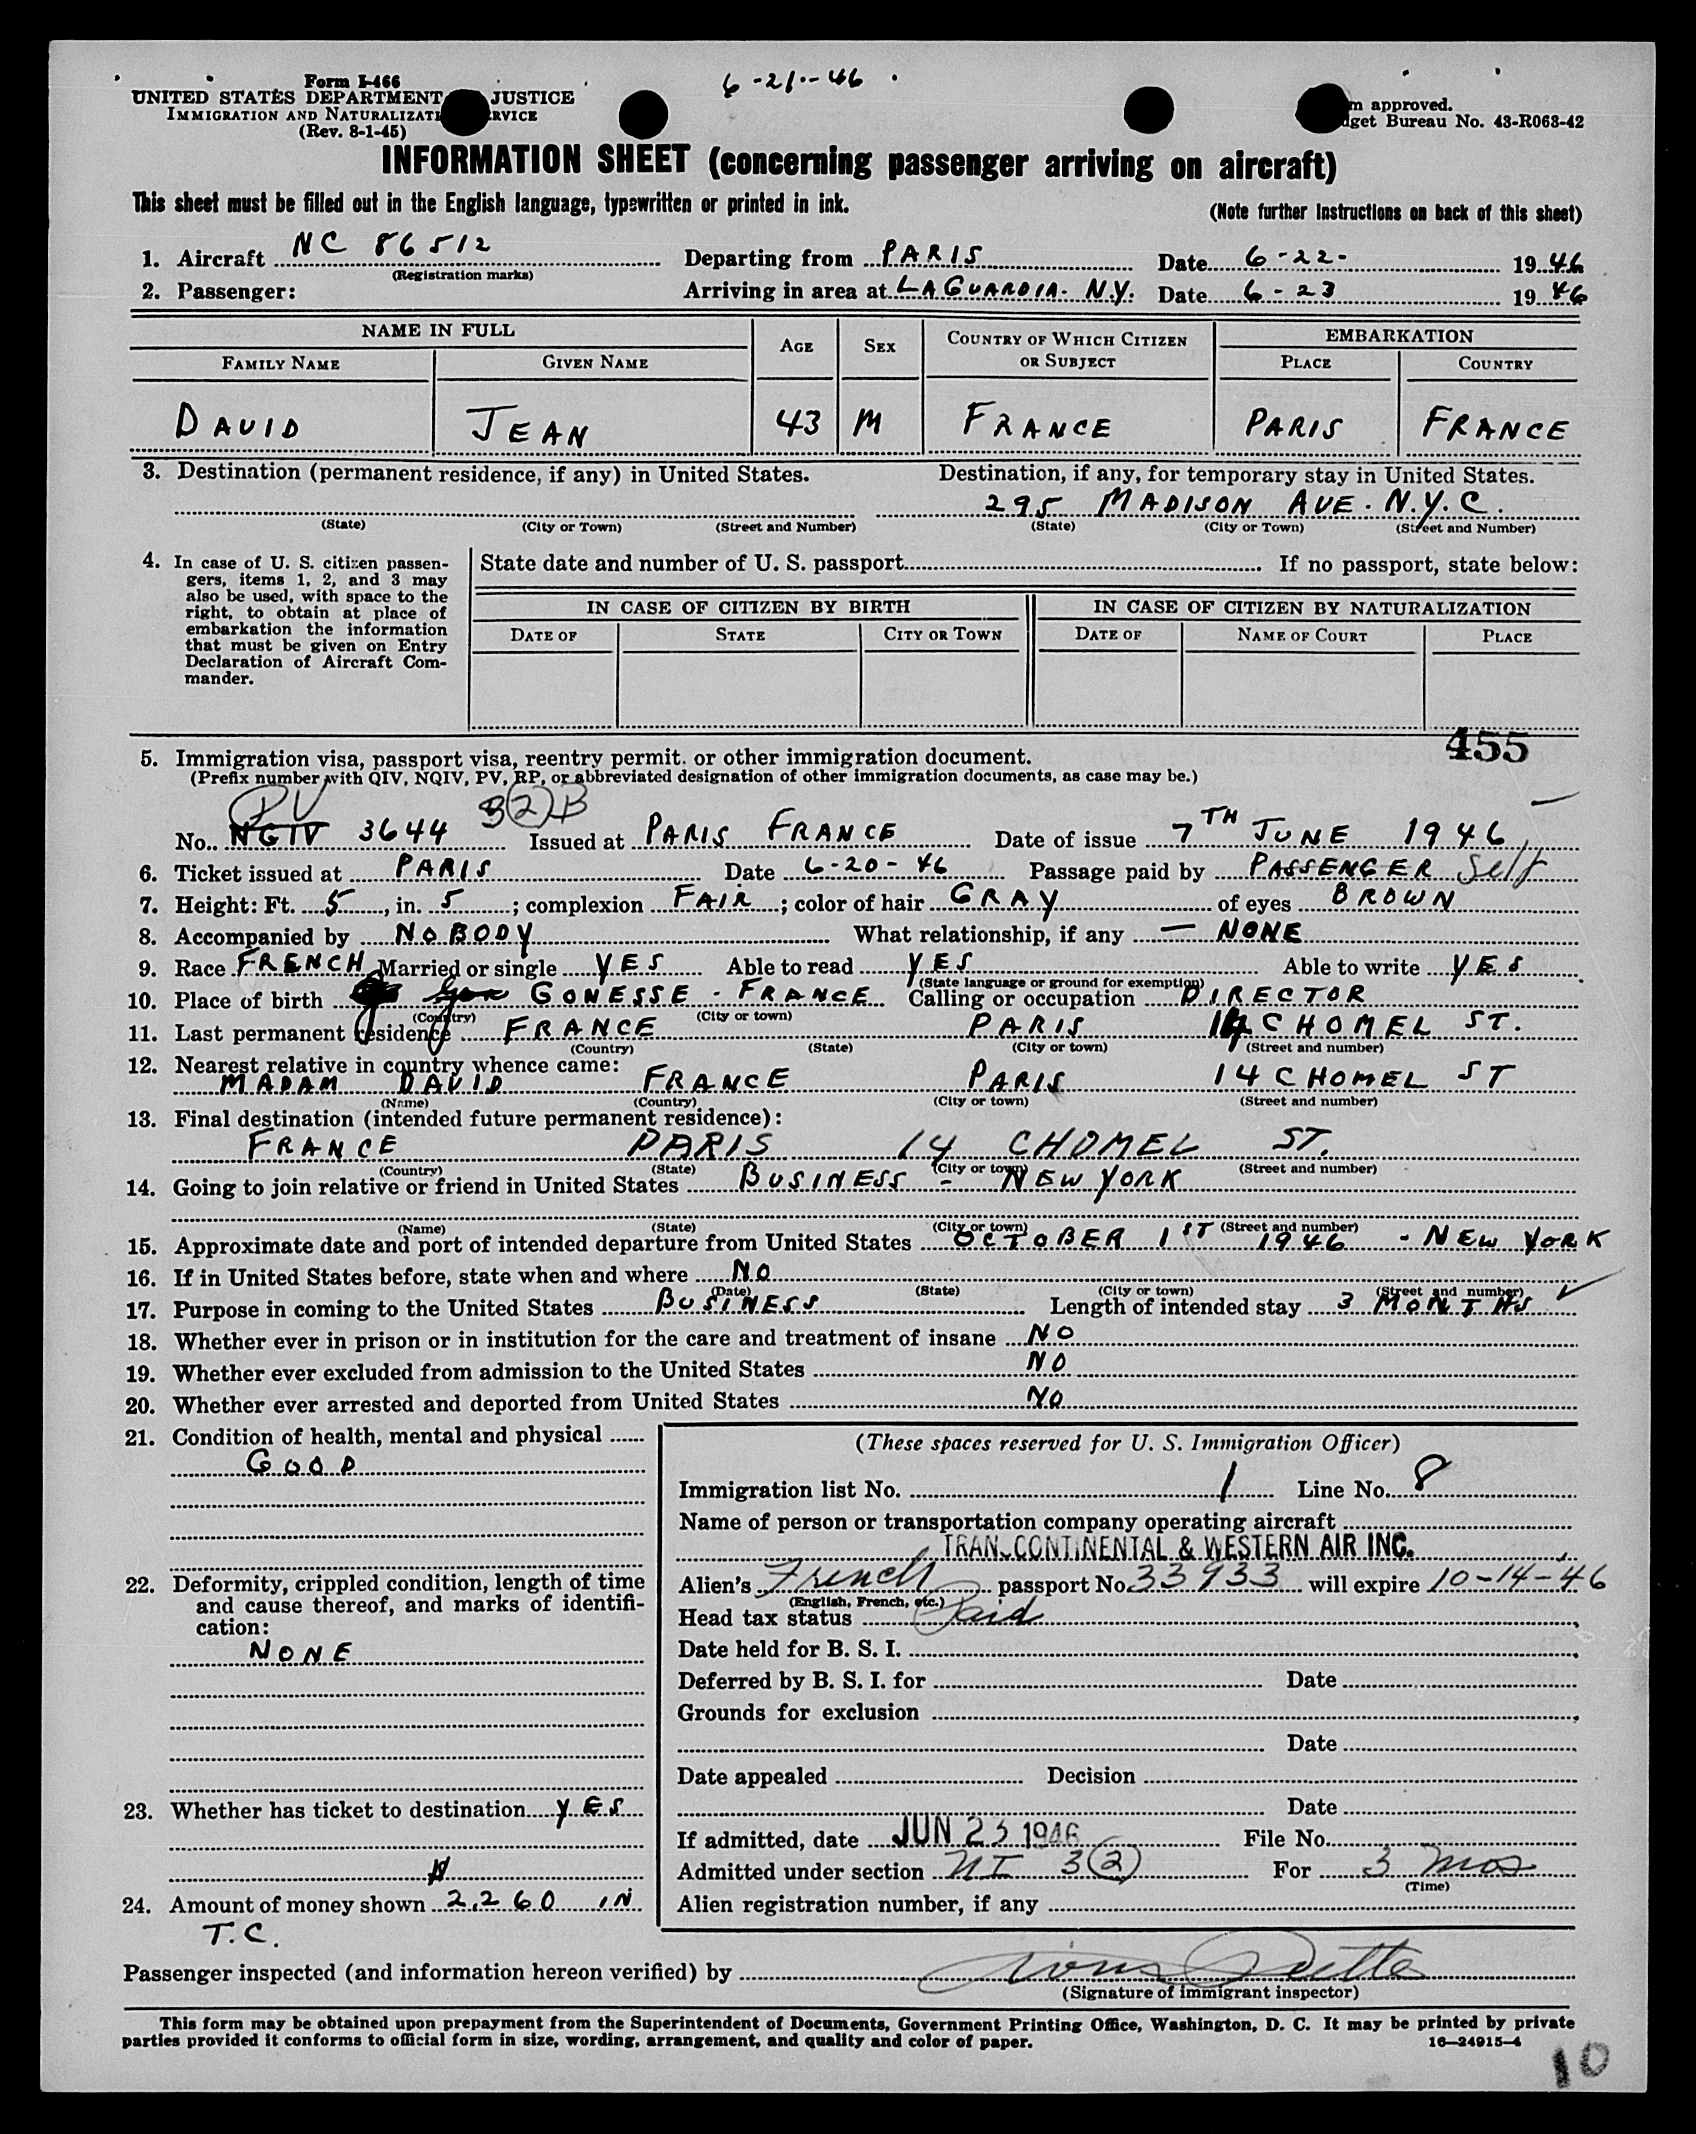 6-21-46
Form I-466
UNITED STATES DEPARTMENT JUSTICE
IMMIGRATION AND NATURALIZATI RVICE
(Rev. 8-1-45)
m approved.
get Bureau No. 43-R063-42
INFORMATION SHEET (concerning passenger arriving on aircraft)
This sheet must be filled out in the English language, typewritten or printed in ink.
(Note further instructions on back of this sheet)
1. Aircraft NC 86512 Departing from PARIS Date 6-22- 1946
(Registration marks)
2. Passenger: Arriving in area at LAGUARDIA. N.Y. Date 6-23 1946
NAME IN FULL AGE SEX COUNTRY OF WHICH CITIZEN OR SUBJECT EMBARKATION
FAMILY NAME GIVEN NAME PLACE COUNTRY
DAVID JEAN 43 M FRANCE PARIS FRANCE
3. Destination (permanent residence, if any) in United States. Destination, if any, for temporary stay in United States.
295 MADISON AVE. N.Y.C.
(State) (City or Town) (Street and Number) (State) (City or Town) (Street and Number)
4. In case of U. S. citizen passengers, items 1, 2, and 3 may also be used, with space to the right, to obtain at place of embarkation the information that must be given on Entry Declaration of Aircraft Commander.
State date and number of U. S. passport If no passport, state below:
IN CASE OF CITIZEN BY BIRTH IN CASE OF CITIZEN BY NATURALIZATION
DATE OF STATE CITY OR TOWN DATE OF NAME OF COURT PLACE
455
5. Immigration visa, passport visa, reentry permit, or other immigration document.
(Prefix number with QIV, NQIV, PV, RP, or abbreviated designation of other immigration documents, as case may be.)
PV 3(2)B
No. NGIV 3644 Issued at PARIS FRANCE Date of issue 7TH JUNE 1946
6. Ticket issued at PARIS Date 6-20-46 Passage paid by PASSENGER Self
7. Height: Ft. 5, in. 5; complexion FAIR; color of hair GRAY of eyes BROWN
8. Accompanied by NOBODY What relationship, if any — NONE
9. Race FRENCH Married or single YES Able to read YES Able to write YES
(State language or ground for exemption)
10. Place of birth GONESSE - FRANCE Calling or occupation DIRECTOR
(Country) (City or town)
11. Last permanent residence FRANCE PARIS 14 CHOMEL ST.
(Country) (State) (City or town) (Street and number)
12. Nearest relative in country whence came:
MADAM DAVID FRANCE PARIS 14 CHOMEL ST
(Name) (Country) (City or town) (Street and number)
13. Final destination (intended future permanent residence):
FRANCE PARIS 14 CHOMEL ST.
(Country) (State) (City or town) (Street and number)
14. Going to join relative or friend in United States BUSINESS - NEW YORK
(Name) (State) (City or town) (Street and number)
15. Approximate date and port of intended departure from United States OCTOBER 1ST 1946 - NEW YORK
16. If in United States before, state when and where NO
(Date) (State) (City or town) (Street and number)
17. Purpose in coming to the United States BUSINESS Length of intended stay 3 MONTHS
18. Whether ever in prison or in institution for the care and treatment of insane NO
19. Whether ever excluded from admission to the United States NO
20. Whether ever arrested and deported from United States NO
21. Condition of health, mental and physical
GOOD
22. Deformity, crippled condition, length of time and cause thereof, and marks of identification:
NONE
23. Whether has ticket to destination YES
24. Amount of money shown 2,260 IN
T.C.
(These spaces reserved for U. S. Immigration Officer)
Immigration list No. 1 Line No. 8
Name of person or transportation company operating aircraft
TRANSCONTINENTAL & WESTERN AIR INC.
Alien's French passport No. 33933 will expire 10-14-46
(English, French, etc.)
Head tax status Paid
Date held for B. S. I.
Deferred by B. S. I. for Date
Grounds for exclusion
Date
Date appealed Decision
Date
If admitted, date JUN 23 1946 File No.
Admitted under section NI 3(2) For 3 mos
(Time)
Alien registration number, if any
Passenger inspected (and information hereon verified) by
(Signature of immigrant inspector)
This form may be obtained upon prepayment from the Superintendent of Documents, Government Printing Office, Washington, D. C. It may be printed by private
parties provided it conforms to official form in size, wording, arrangement, and quality and color of paper. 16—24915-4
10